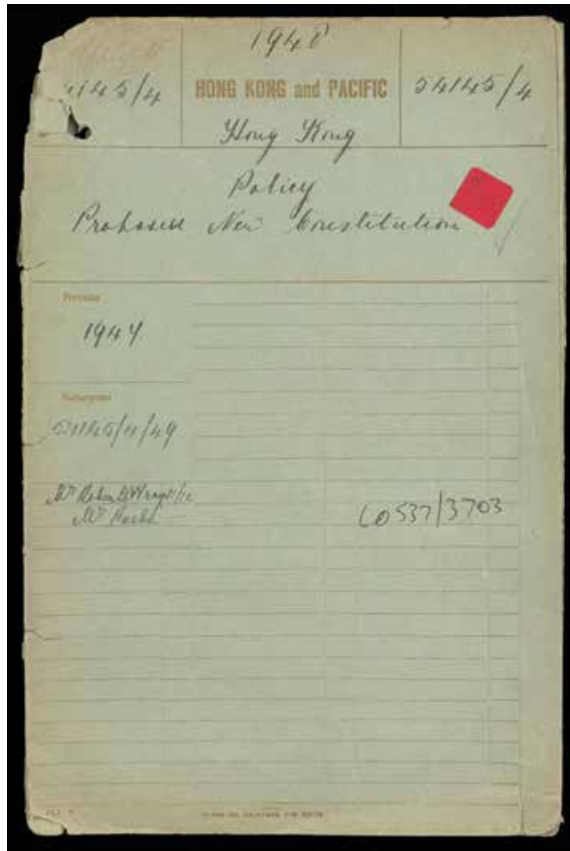 1948
HONG KONG and PACIFIC
54145/4
Hong Kong
Policy
Proposed New Constitution
Previous
1947
Subsequent
54145/4/49
Mr
Mr
CO537/3703